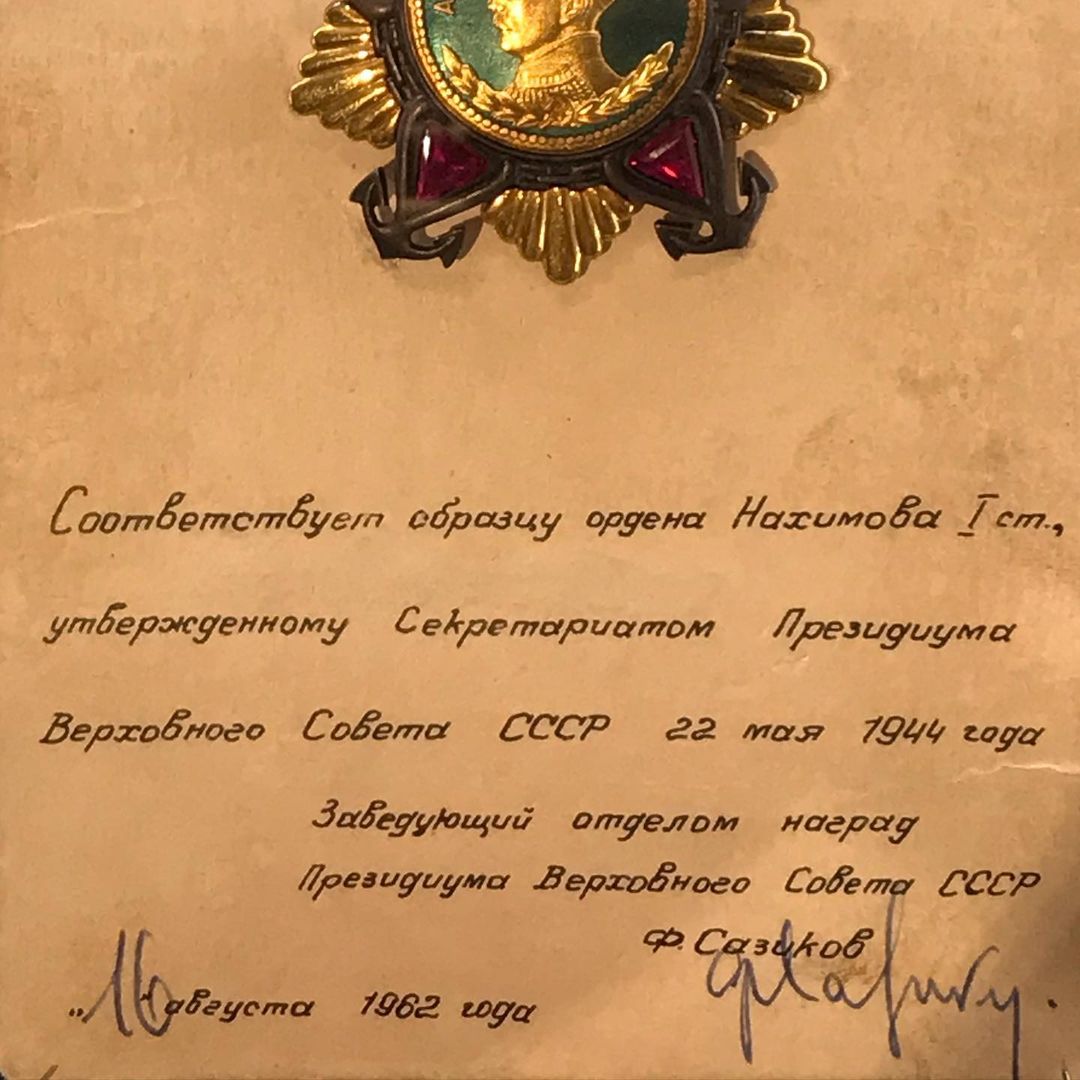 А
Соответствует образцу ордена Нахимова I ст.,
утвержденному Секретариатом Президиума
Верховного Совета СССР 22 мая 1944 года
Заведующий отделом наград
Президиума Верховного Совета СССР
Ф. Сазиков
„16" августа 1962 года